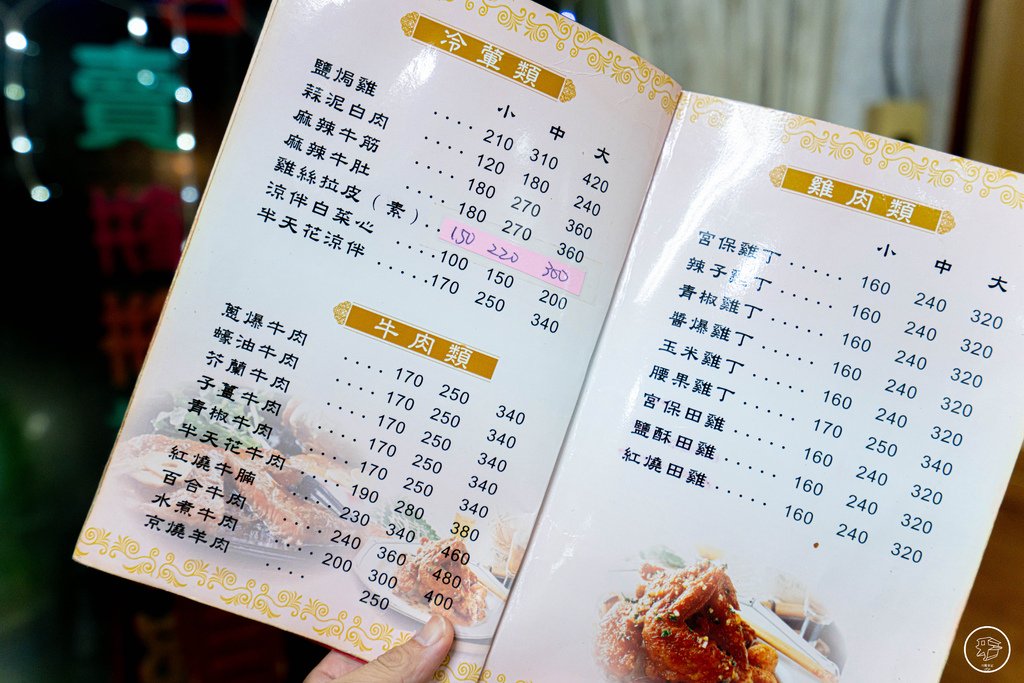 冷葷類
小 中 大
鹽焗雞 .... 210 310 420
蒜泥白肉 .... 120 180 240
麻辣牛筋 .... 180 270 360
麻辣牛肚 .... 180 270 360
雞絲拉皮(素) .. 150 220 300
涼伴白菜心 .... 100 150 200
半天花涼伴 ..... 170 250 340
牛肉類
蔥爆牛肉 .... 170 250 340
蠔油牛肉 .... 170 250 340
芥蘭牛肉 .... 170 250 340
子薑牛肉 .... 170 250 340
青椒牛肉 .... 170 250 340
半天花牛肉 .... 190 280 380
紅燒牛腩 .... 230 340 460
百合牛肉 .... 240 360 480
水煮牛肉 .... 200 300 400
京燒羊肉 ..... 250
雞肉類
小 中 大
宮保雞丁 ...... 160 240 320
辣子雞丁 ...... 160 240 320
青椒雞丁 ...... 160 240 320
醬爆雞丁 ...... 160 240 320
玉米雞丁 ...... 160 240 320
腰果雞丁 ...... 170 250 340
宮保田雞 ...... 160 240 320
鹽酥田雞 ...... 160 240 320
紅燒田雞 ...... 160 240 320